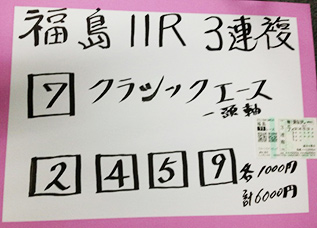 福島11R 3連複
7 クラシックエース
一頭軸
2 4 5 9 各1000円
計6000円